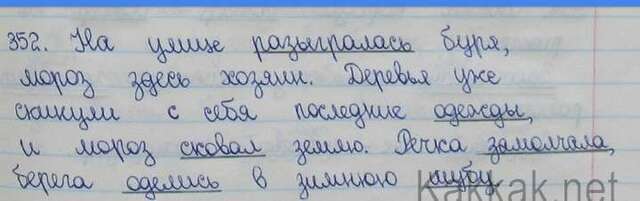 352. На улице разыгралась буря,
мороз здесь хозяин. Деревья уже
скинули с себя последние одежды,
и мороз сковал землю. Речка замолчала,
берега оделись в зимнюю шубу.
kakkak.net